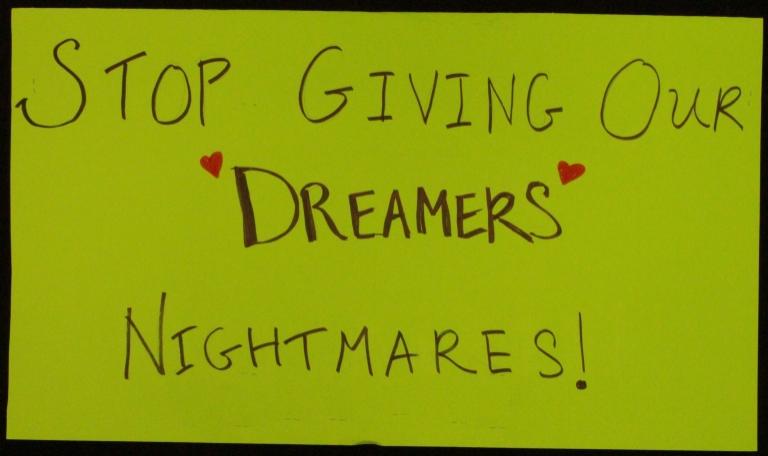 STOP GIVING OUR
DREAMERS
NIGHTMARES!